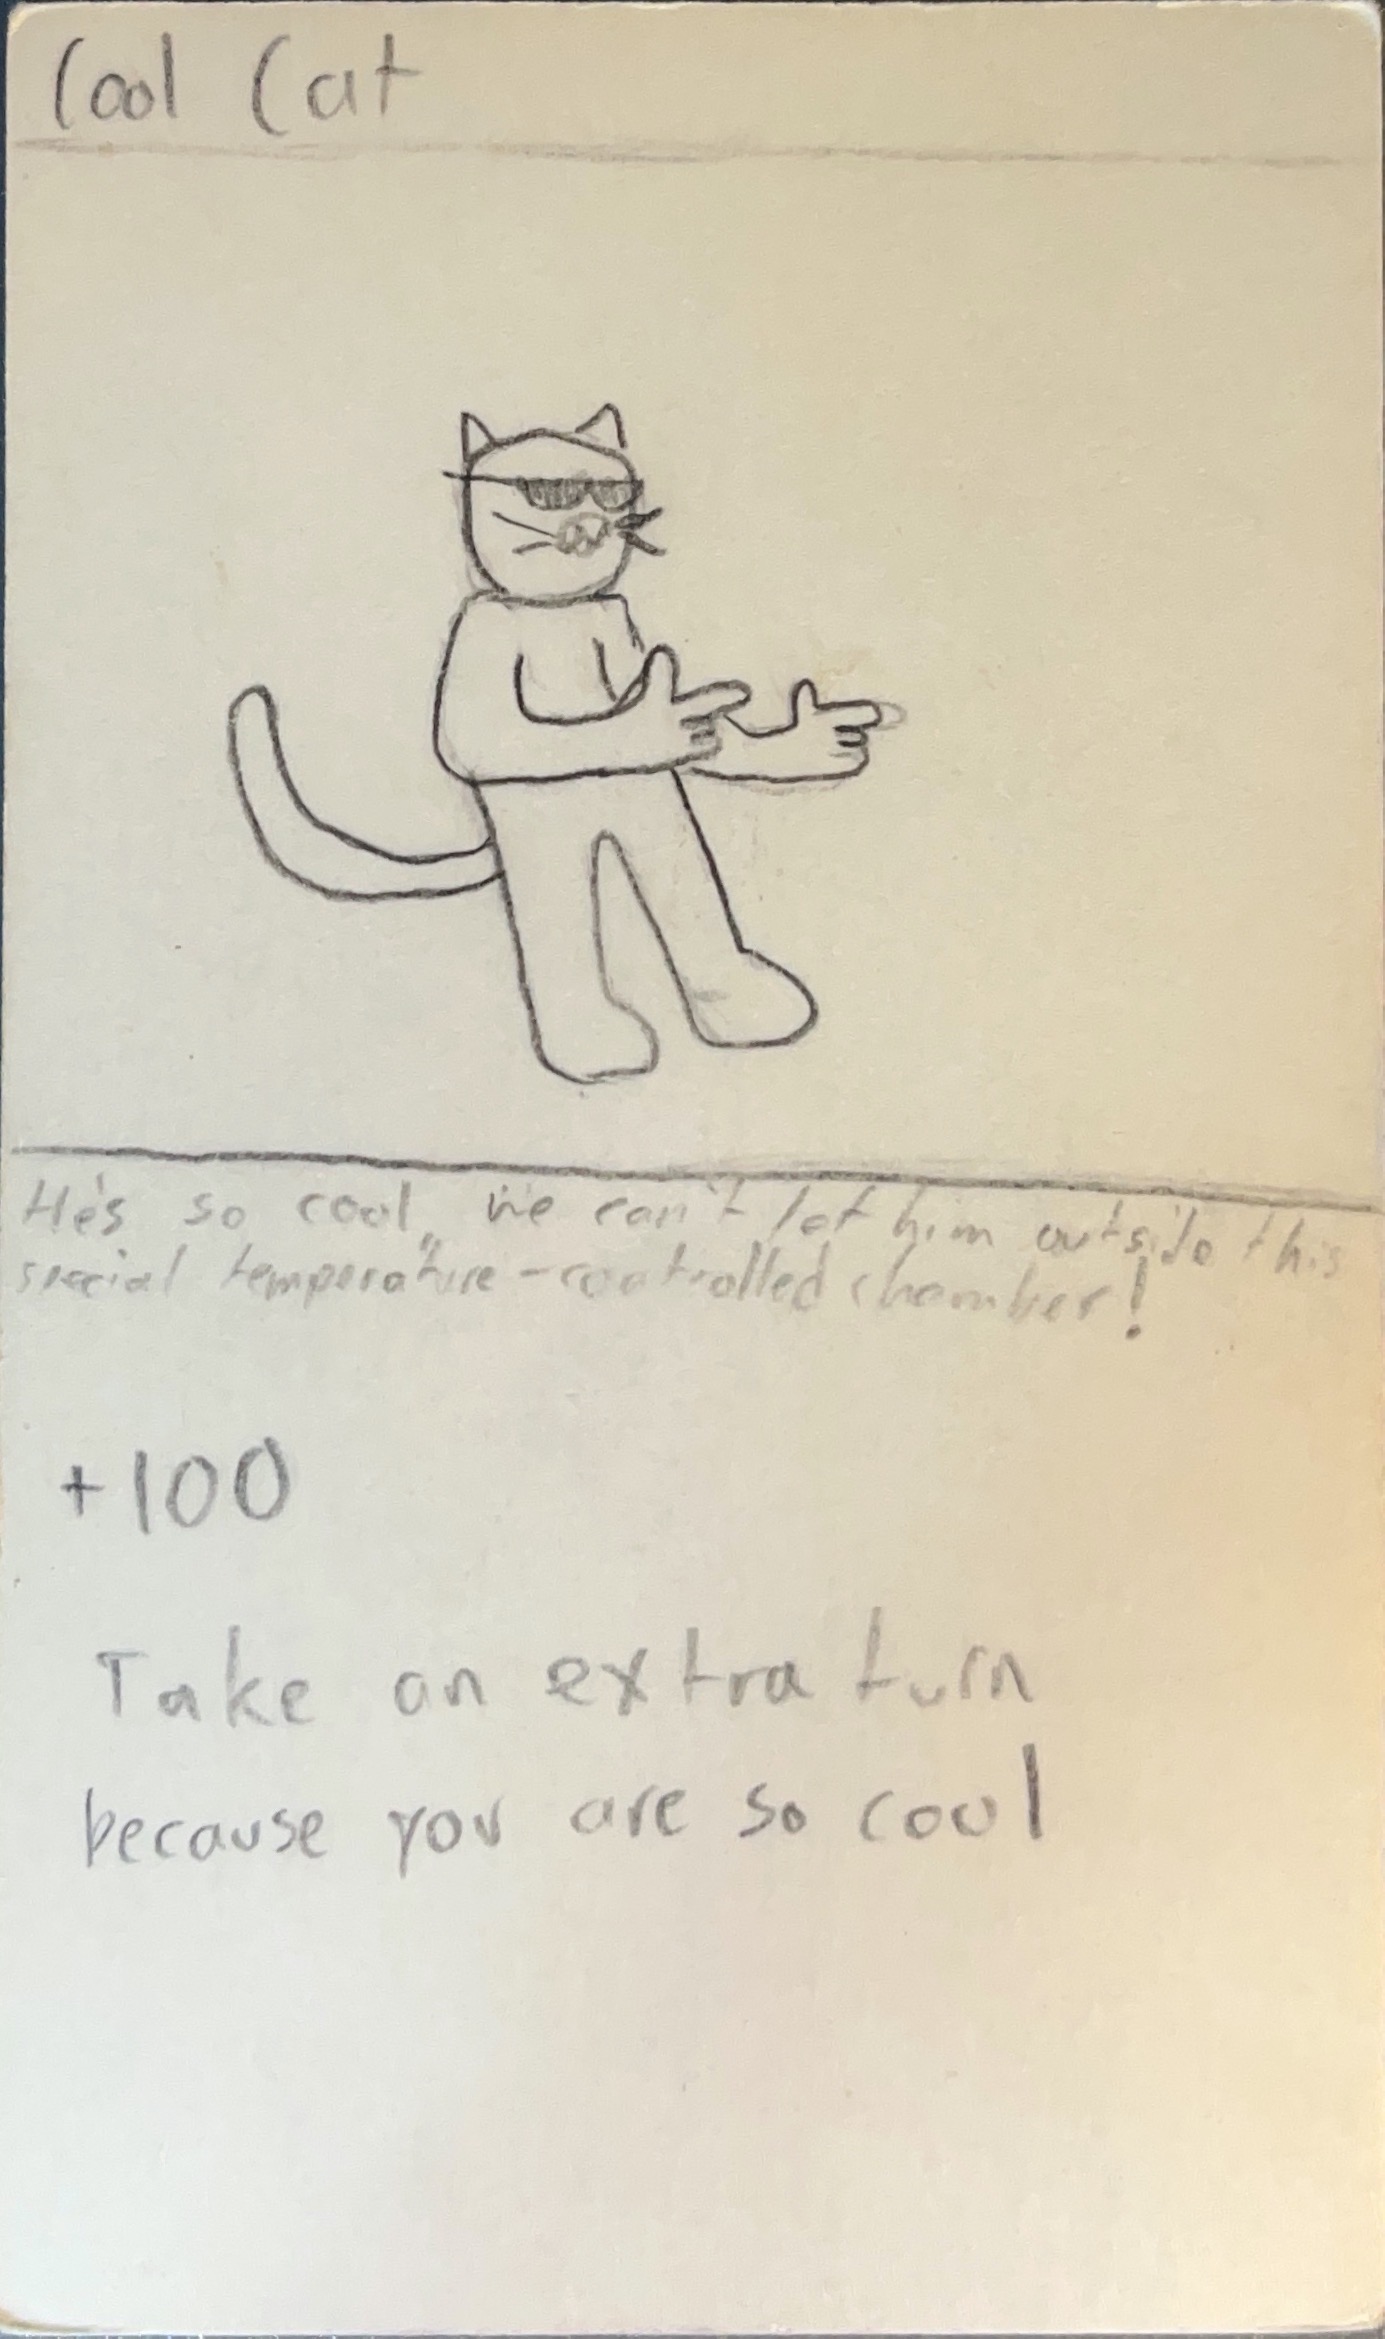 Cool Cat
He's so cool, we can't let him outside this
special temperature-controlled chamber!
+100
Take an extra turn
because you are so cool